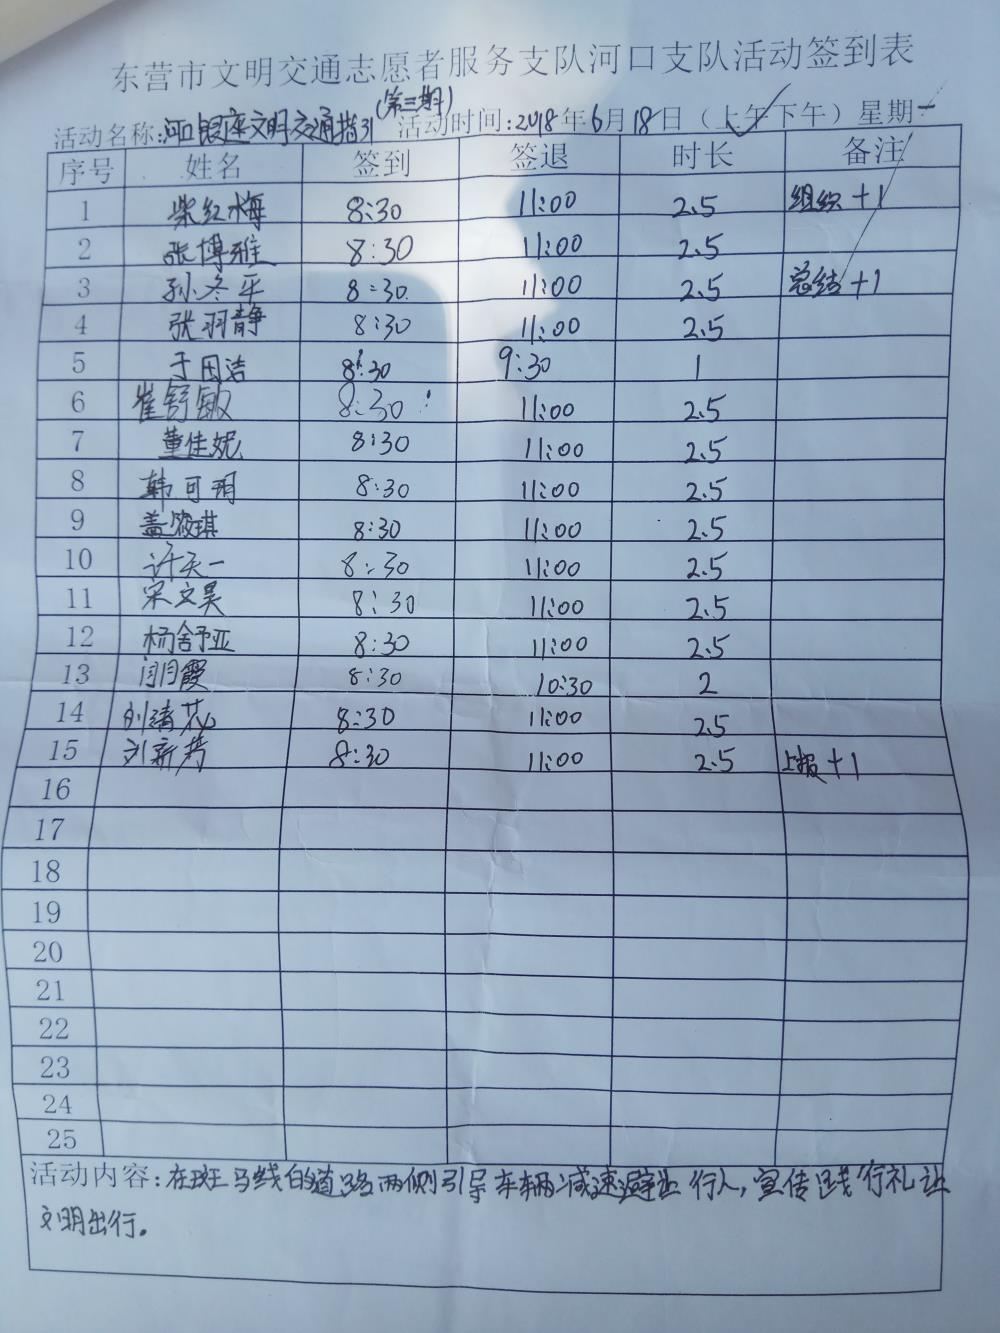 东营市文明交通志愿者服务支队河口支队活动签到表
(第三期)
活动名称:河口银座文明交通指引 活动时间:2018年6月18日（上午下午）星期一
序号 姓名 签到 签退 时长 备注
1 柴红梅 8:30 11:00 2.5 组织+1
2 张博雅 8:30 11:00 2.5
3 孙冬平 8:30 11:00 2.5 总结+1
4 张羽静 8:30 11:00 2.5
5 于田洁 8:30 9:30 1
6 崔舒敏 8:30 11:00 2.5
7 董佳妮 8:30 11:00 2.5
8 韩可玥 8:30 11:00 2.5
9 盖筱琪 8:30 11:00 2.5
10 许天一 8:30 11:00 2.5
11 宋文昊 8:30 11:00 2.5
12 杨舒亚 8:30 11:00 2.5
13 闫霞 8:30 10:30 2
14 刘清花 8:30 11:00 2.5
15 刘新芳 8:30 11:00 2.5 上报+1
16
17
18
19
20
21
22
23
24
25
活动内容:在斑马线的道路两侧引导车辆减速避让行人,宣传践行礼让
文明出行。